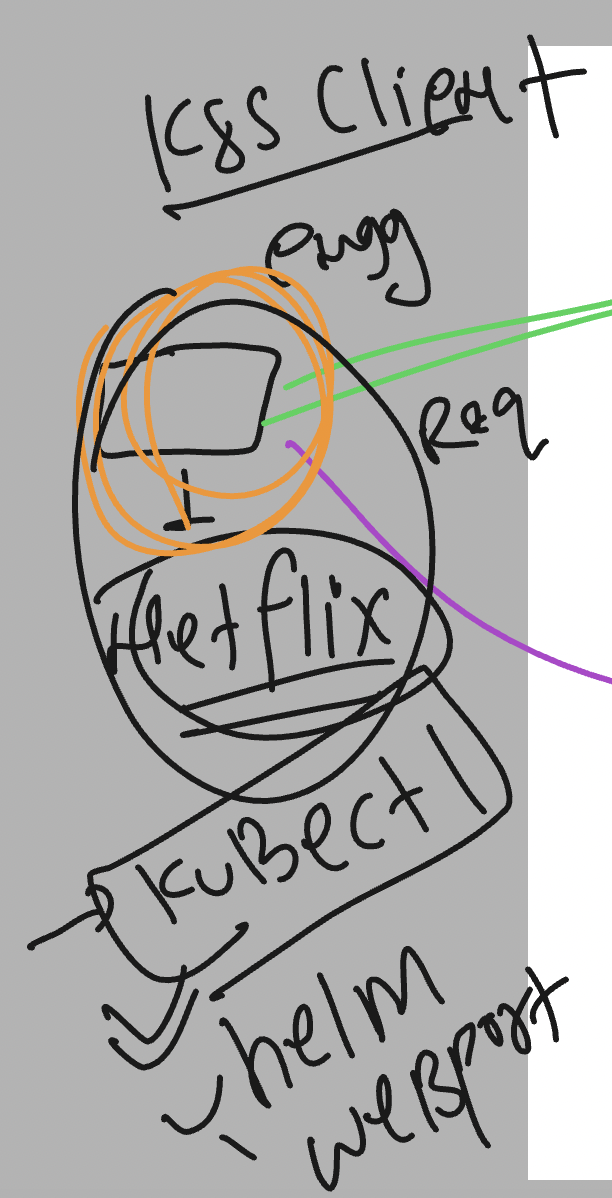 K8S Client
engg
Req
Netflix
KuBectl
helm
weBport